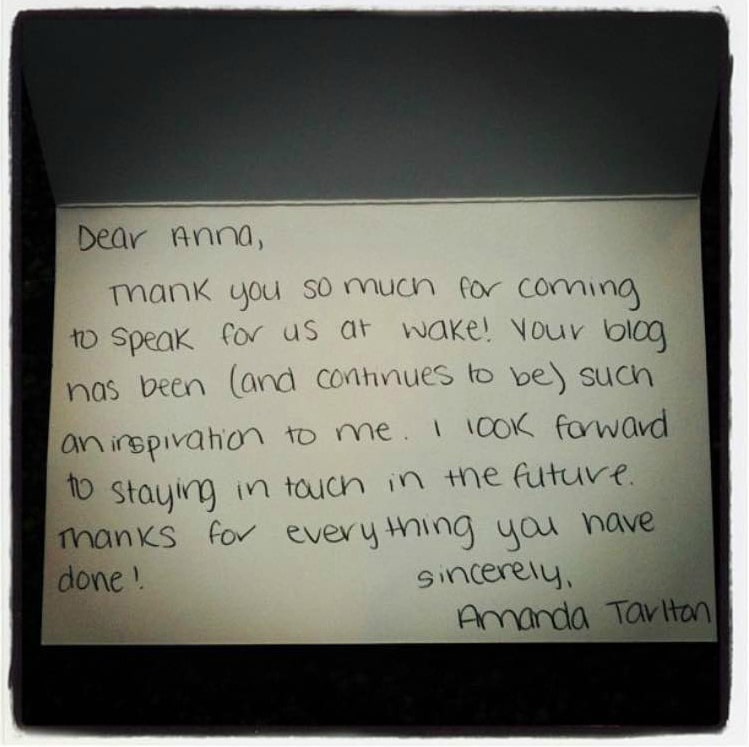 Dear Anna,
Thank you so much for coming
to speak for us at Wake! Your blog
has been (and continues to be) such
an inspiration to me. I look forward
to staying in touch in the future.
Thanks for everything you have
done!
Sincerely,
Amanda Tarlton